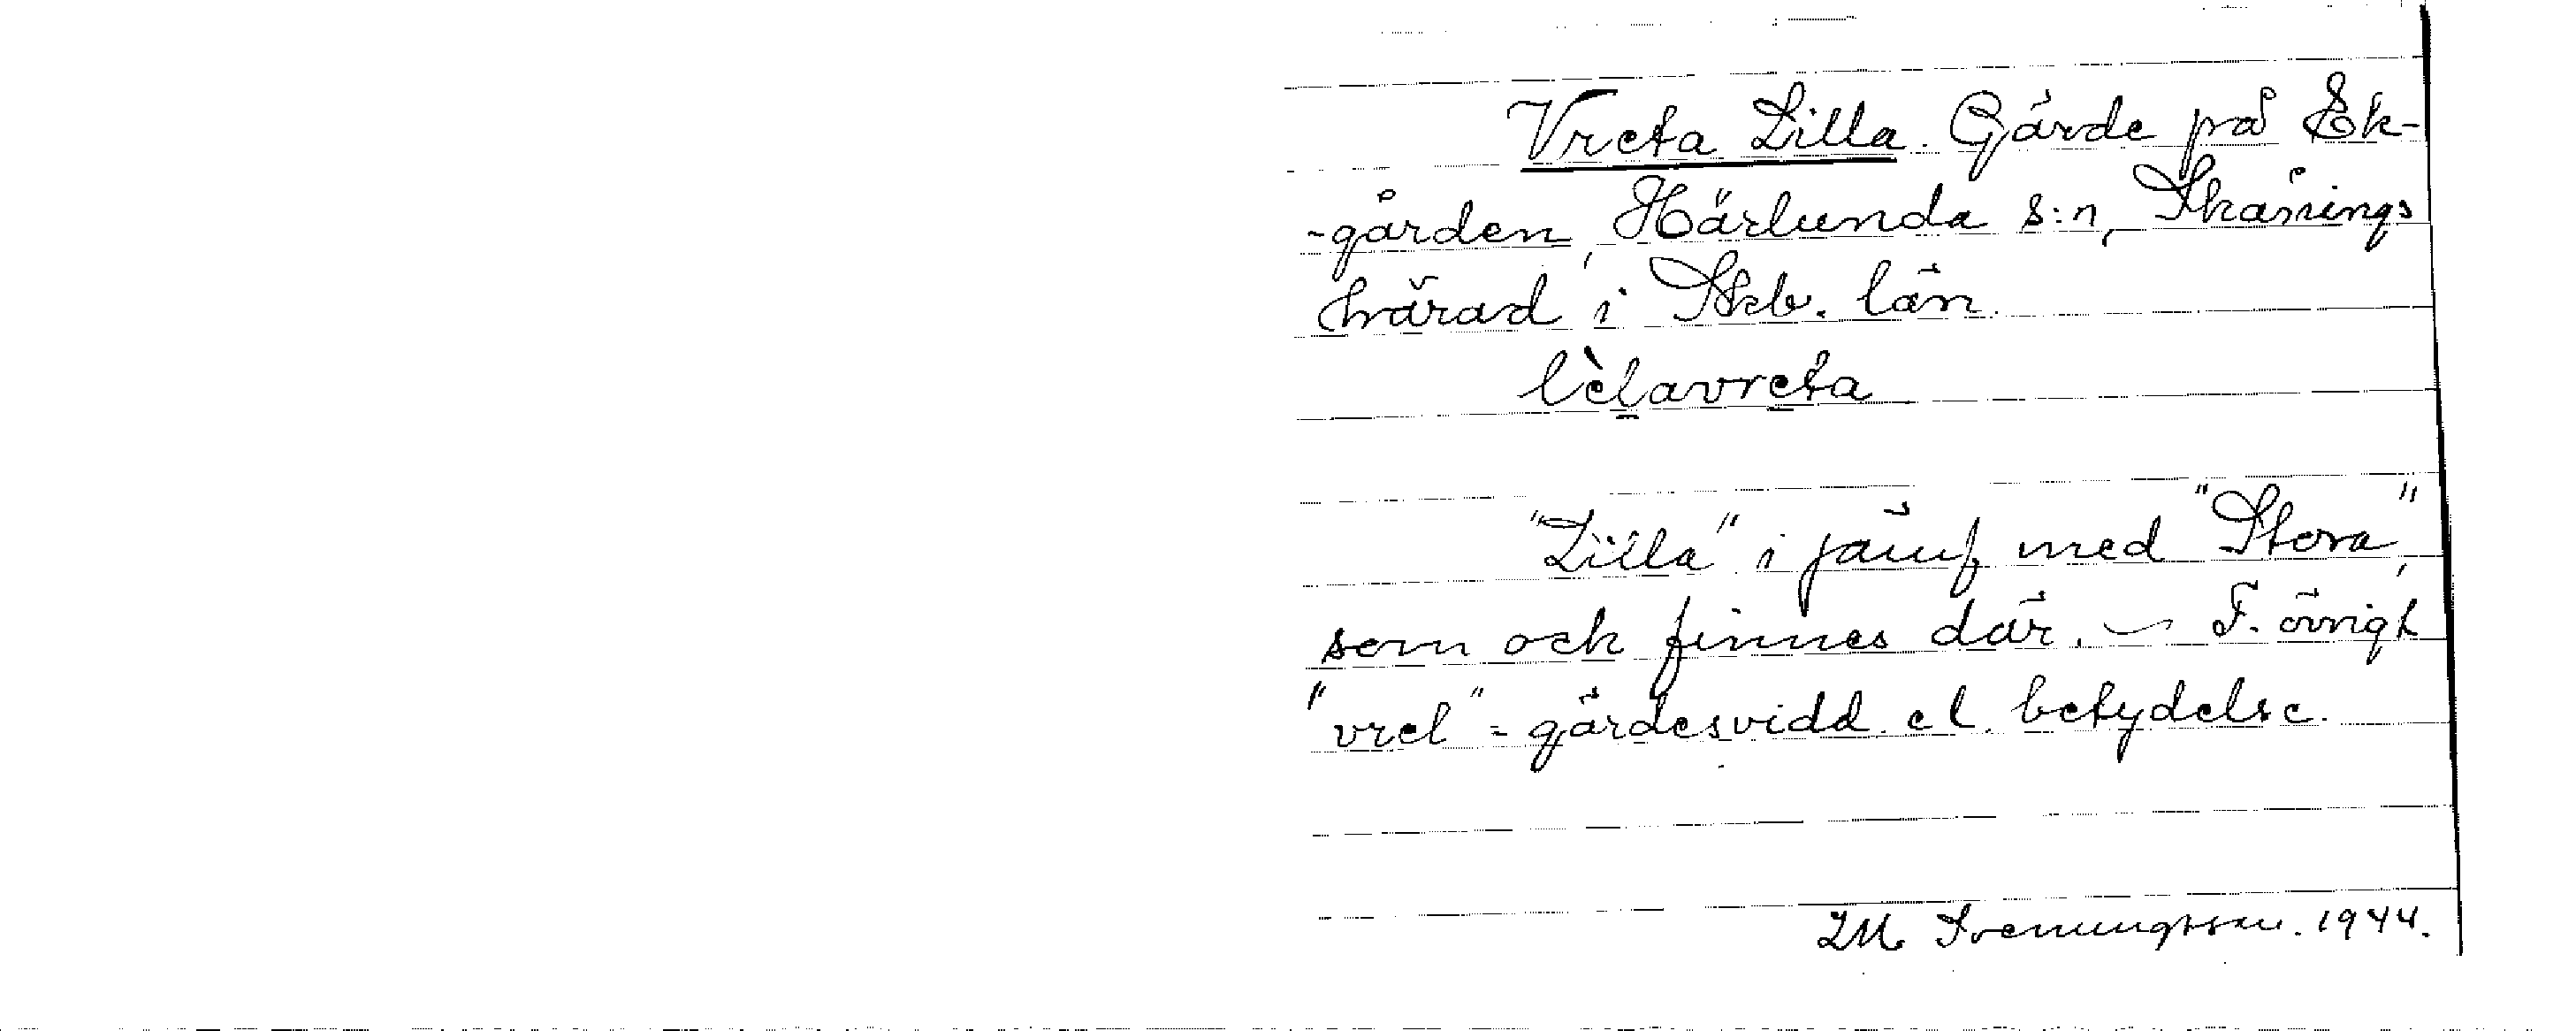 Vreta Lilla. Gärde på Ek-
-gården, Härlunda s:n, Skånings
härad i Skb. län.
lèlavreta
"Lilla" i jämf med "Stora",
som ock finnes där. — F. övrigt
"vret" = gärdesvidd. el. betydelse.
I M. Svenungsson. 1944.